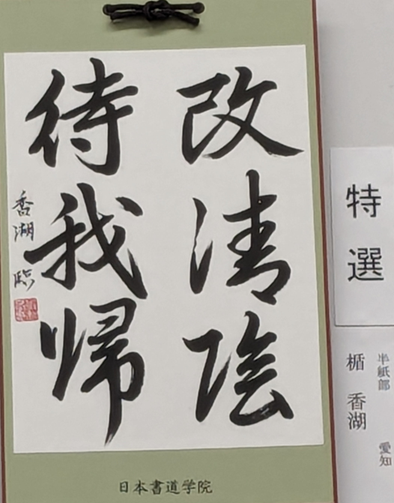 改清陰
待我帰
香湖臨
日本書道学院
特選
半紙部 愛知
楯 香湖